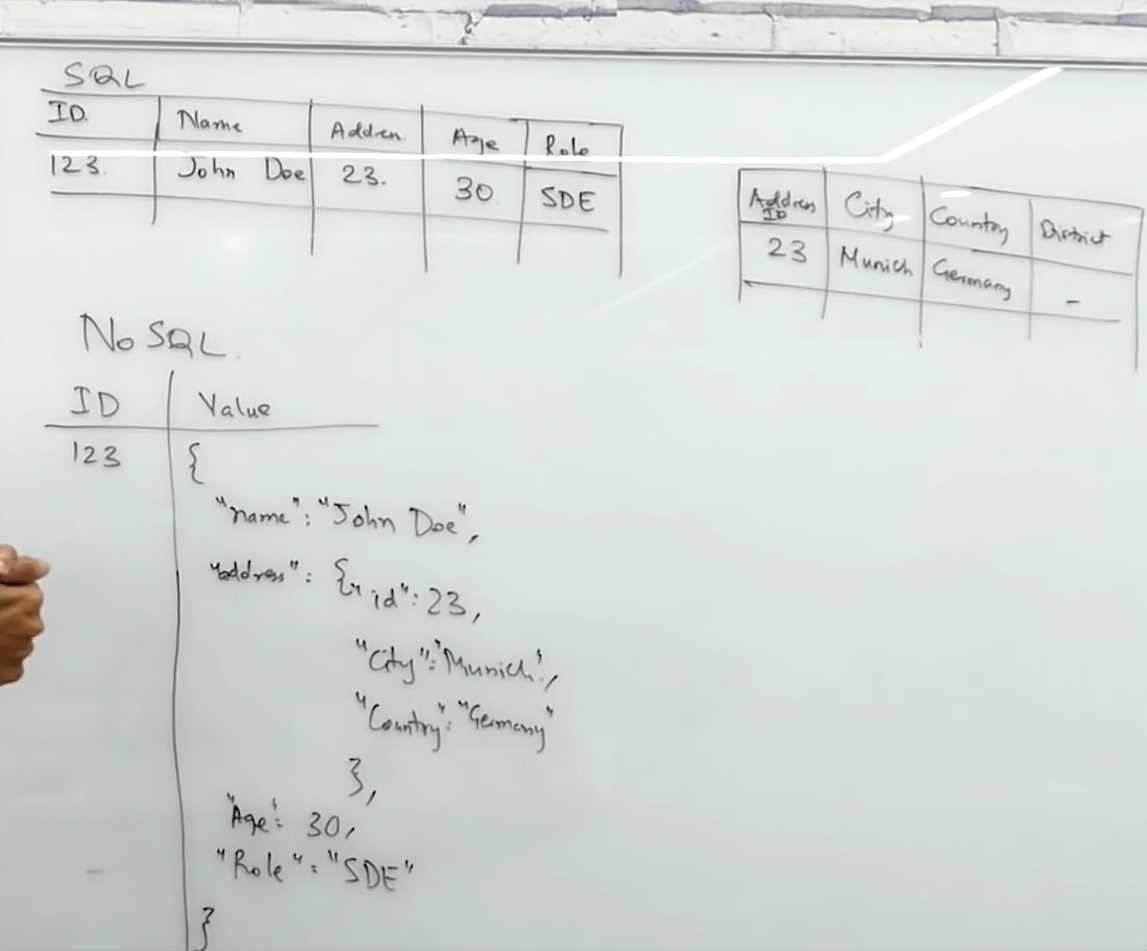 SQL
ID. Name Addren. Age Role
123. John Doe 23. 30. SDE
Address ID City Country District
23 Munich Germany -
No SQL.
ID Value
123 {
"name": "John Doe",
"address": {"id": 23,
"City": "Munich",
"Country": "Germany"
},
"Age": 30,
"Role": "SDE"
}